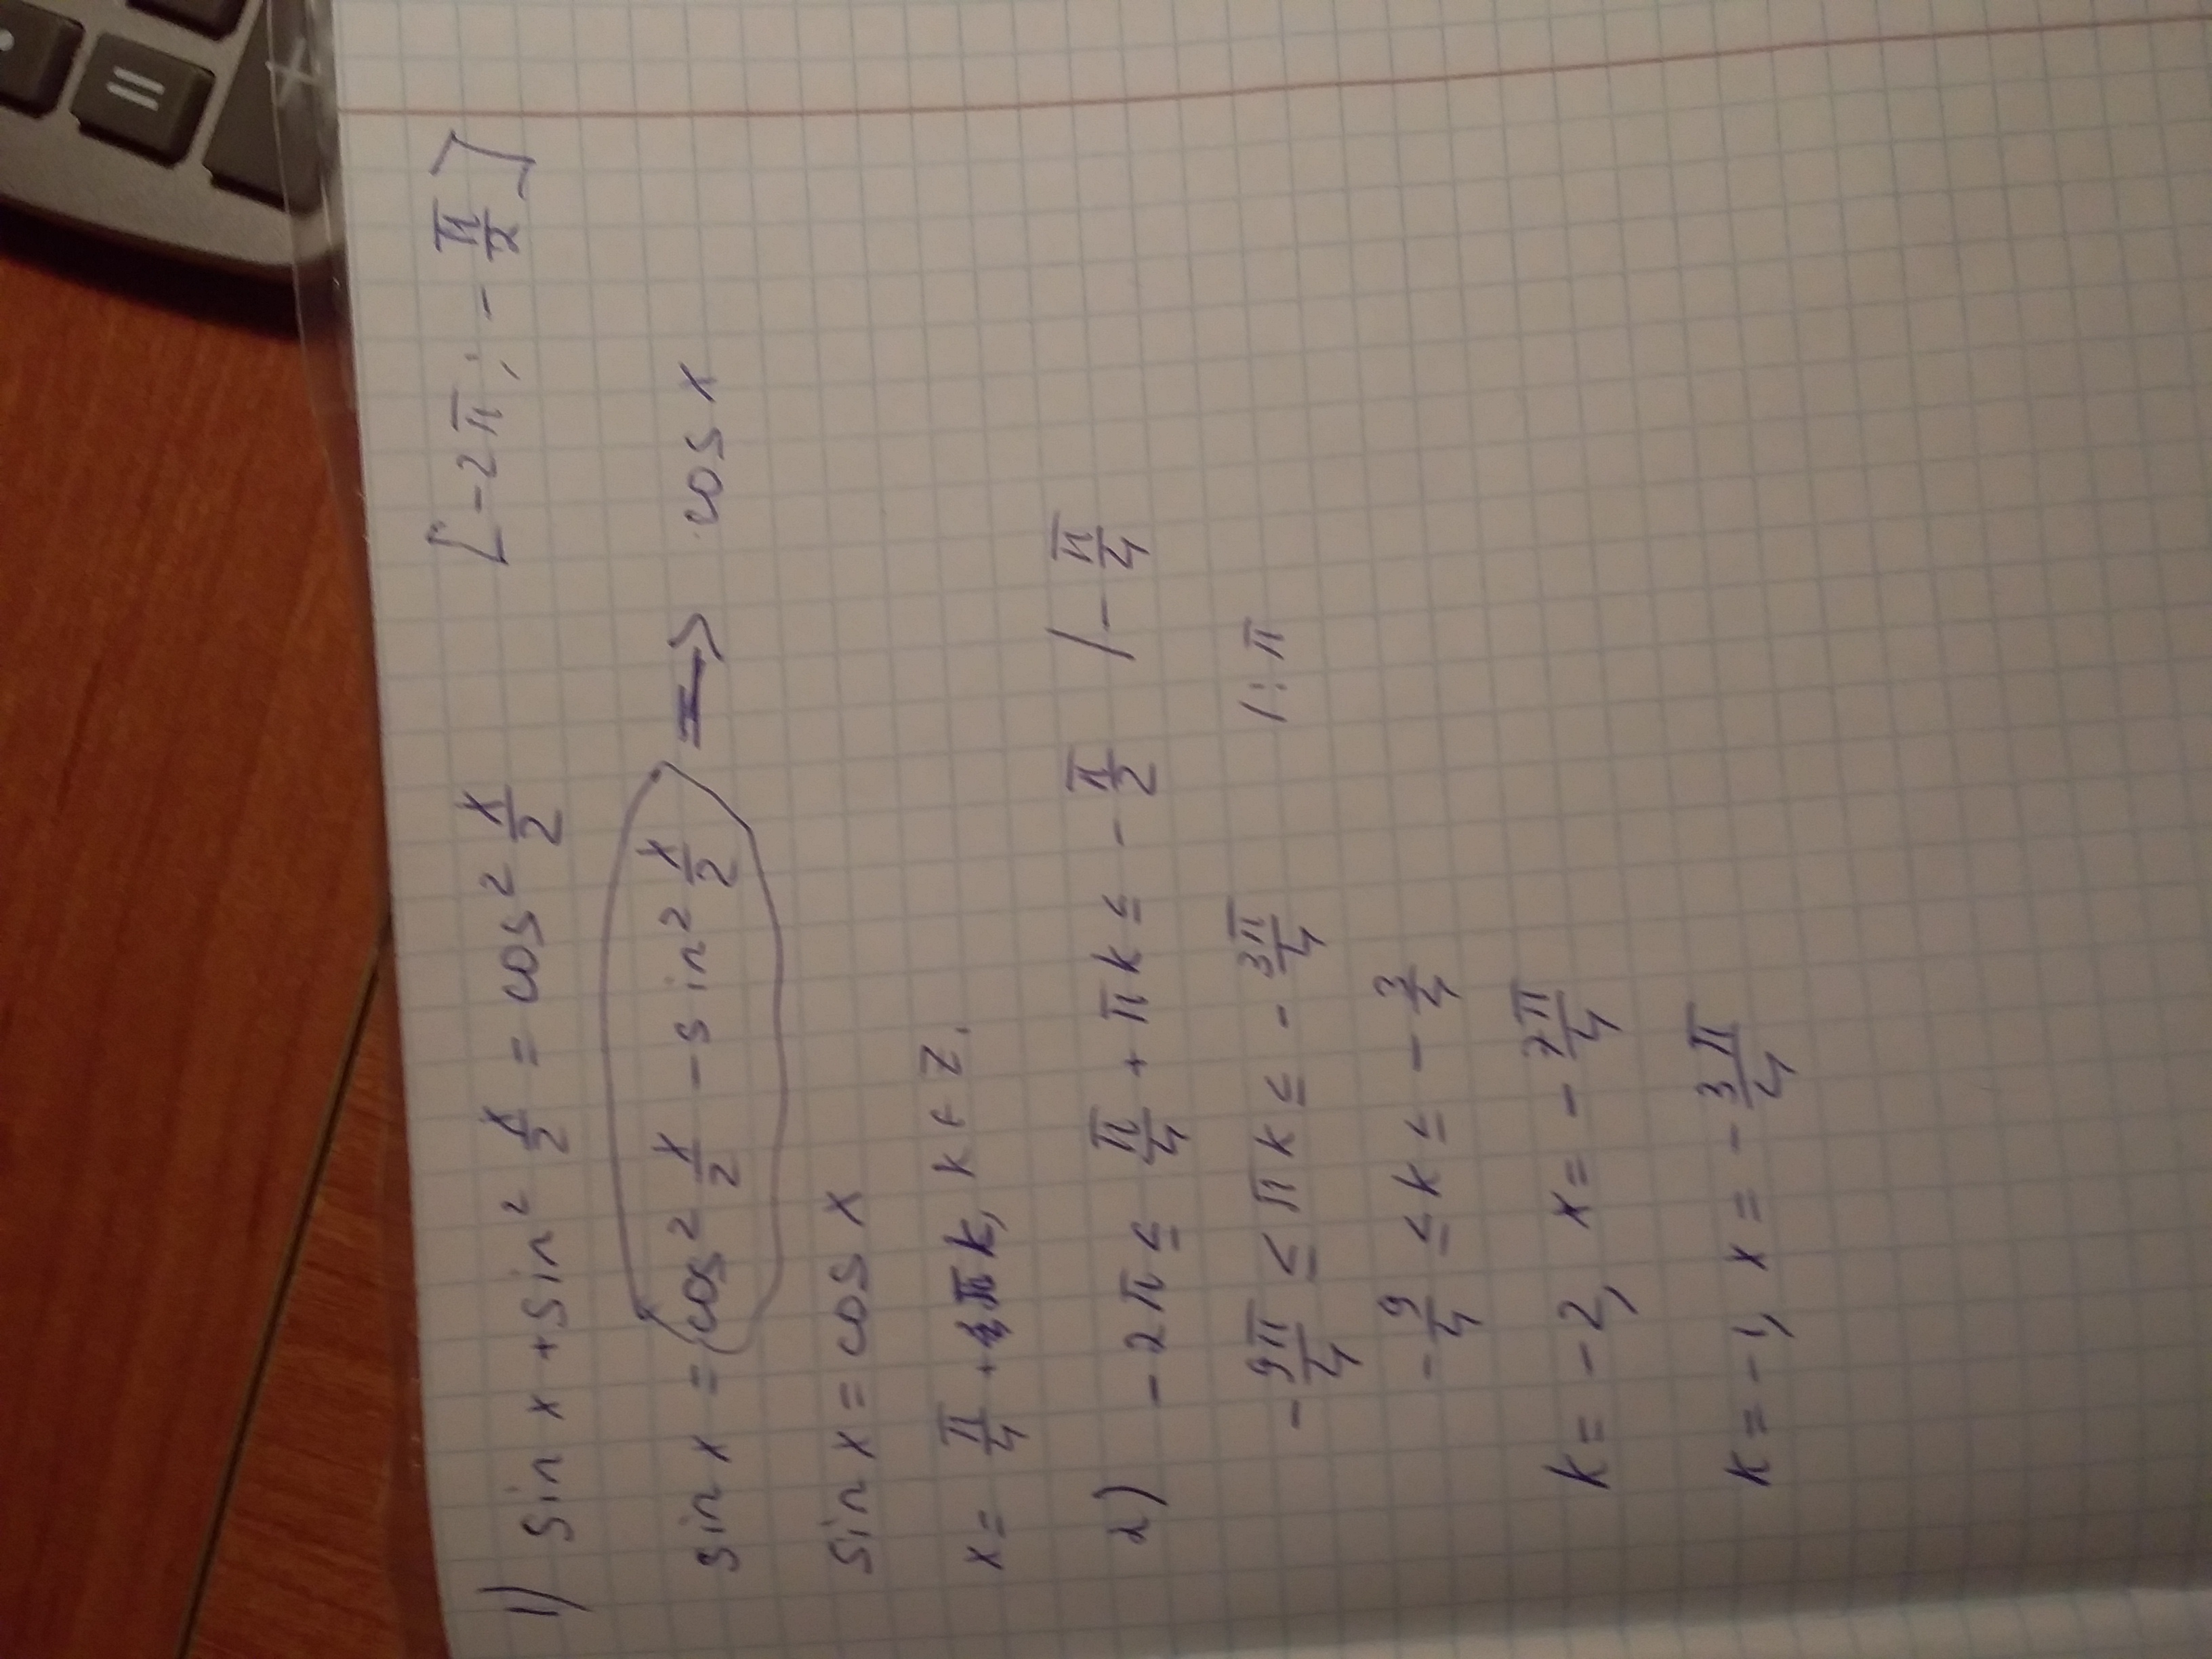 1) sin x + sin² x/2 = cos² x/2 [-2π; -π/2]
sin x = cos² x/2 - sin² x/2 => cos x
sin x = cos x
x = π/4 + πk, k ∈ Z.
2) -2π ≤ π/4 + πk ≤ -π/2 /-π/4
-9π/4 ≤ πk ≤ -3π/4 /:π
-9/4 ≤ k ≤ -3/4
k = -2, x = -7π/4
k = -1, x = -3π/4